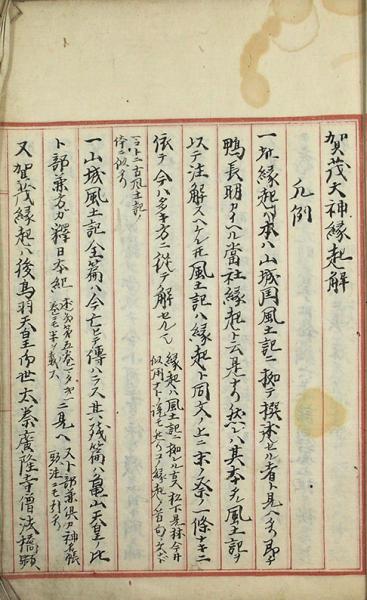 賀茂大神縁起解
凡例
一此縁起ハ本ハ山城国風土記ニ拠テ撰述セル者ト見ヘタリ即チ
鴨長明カイヘル當社縁起ト云是ナリ然レハ其本ナル風土記ヲ
以テ注解スヘケレ共風土記ハ縁起ト同文ノ上ニ末ノ祭ノ一條ナキニ
依テ今ハ多キ方ニ従テ解セルナリ
縁起ハ風土記ニ拠レル
コト
古風土記ノ
一山城風土記全篇ハ今亡ヒテ傳ハラス其残篇ハ亀山天皇ノ比
ト部兼方カ釋日本紀
ニ見ヘ
又賀茂縁起ハ後鳥羽天皇御世太秦廣隆寺僧法橋顕